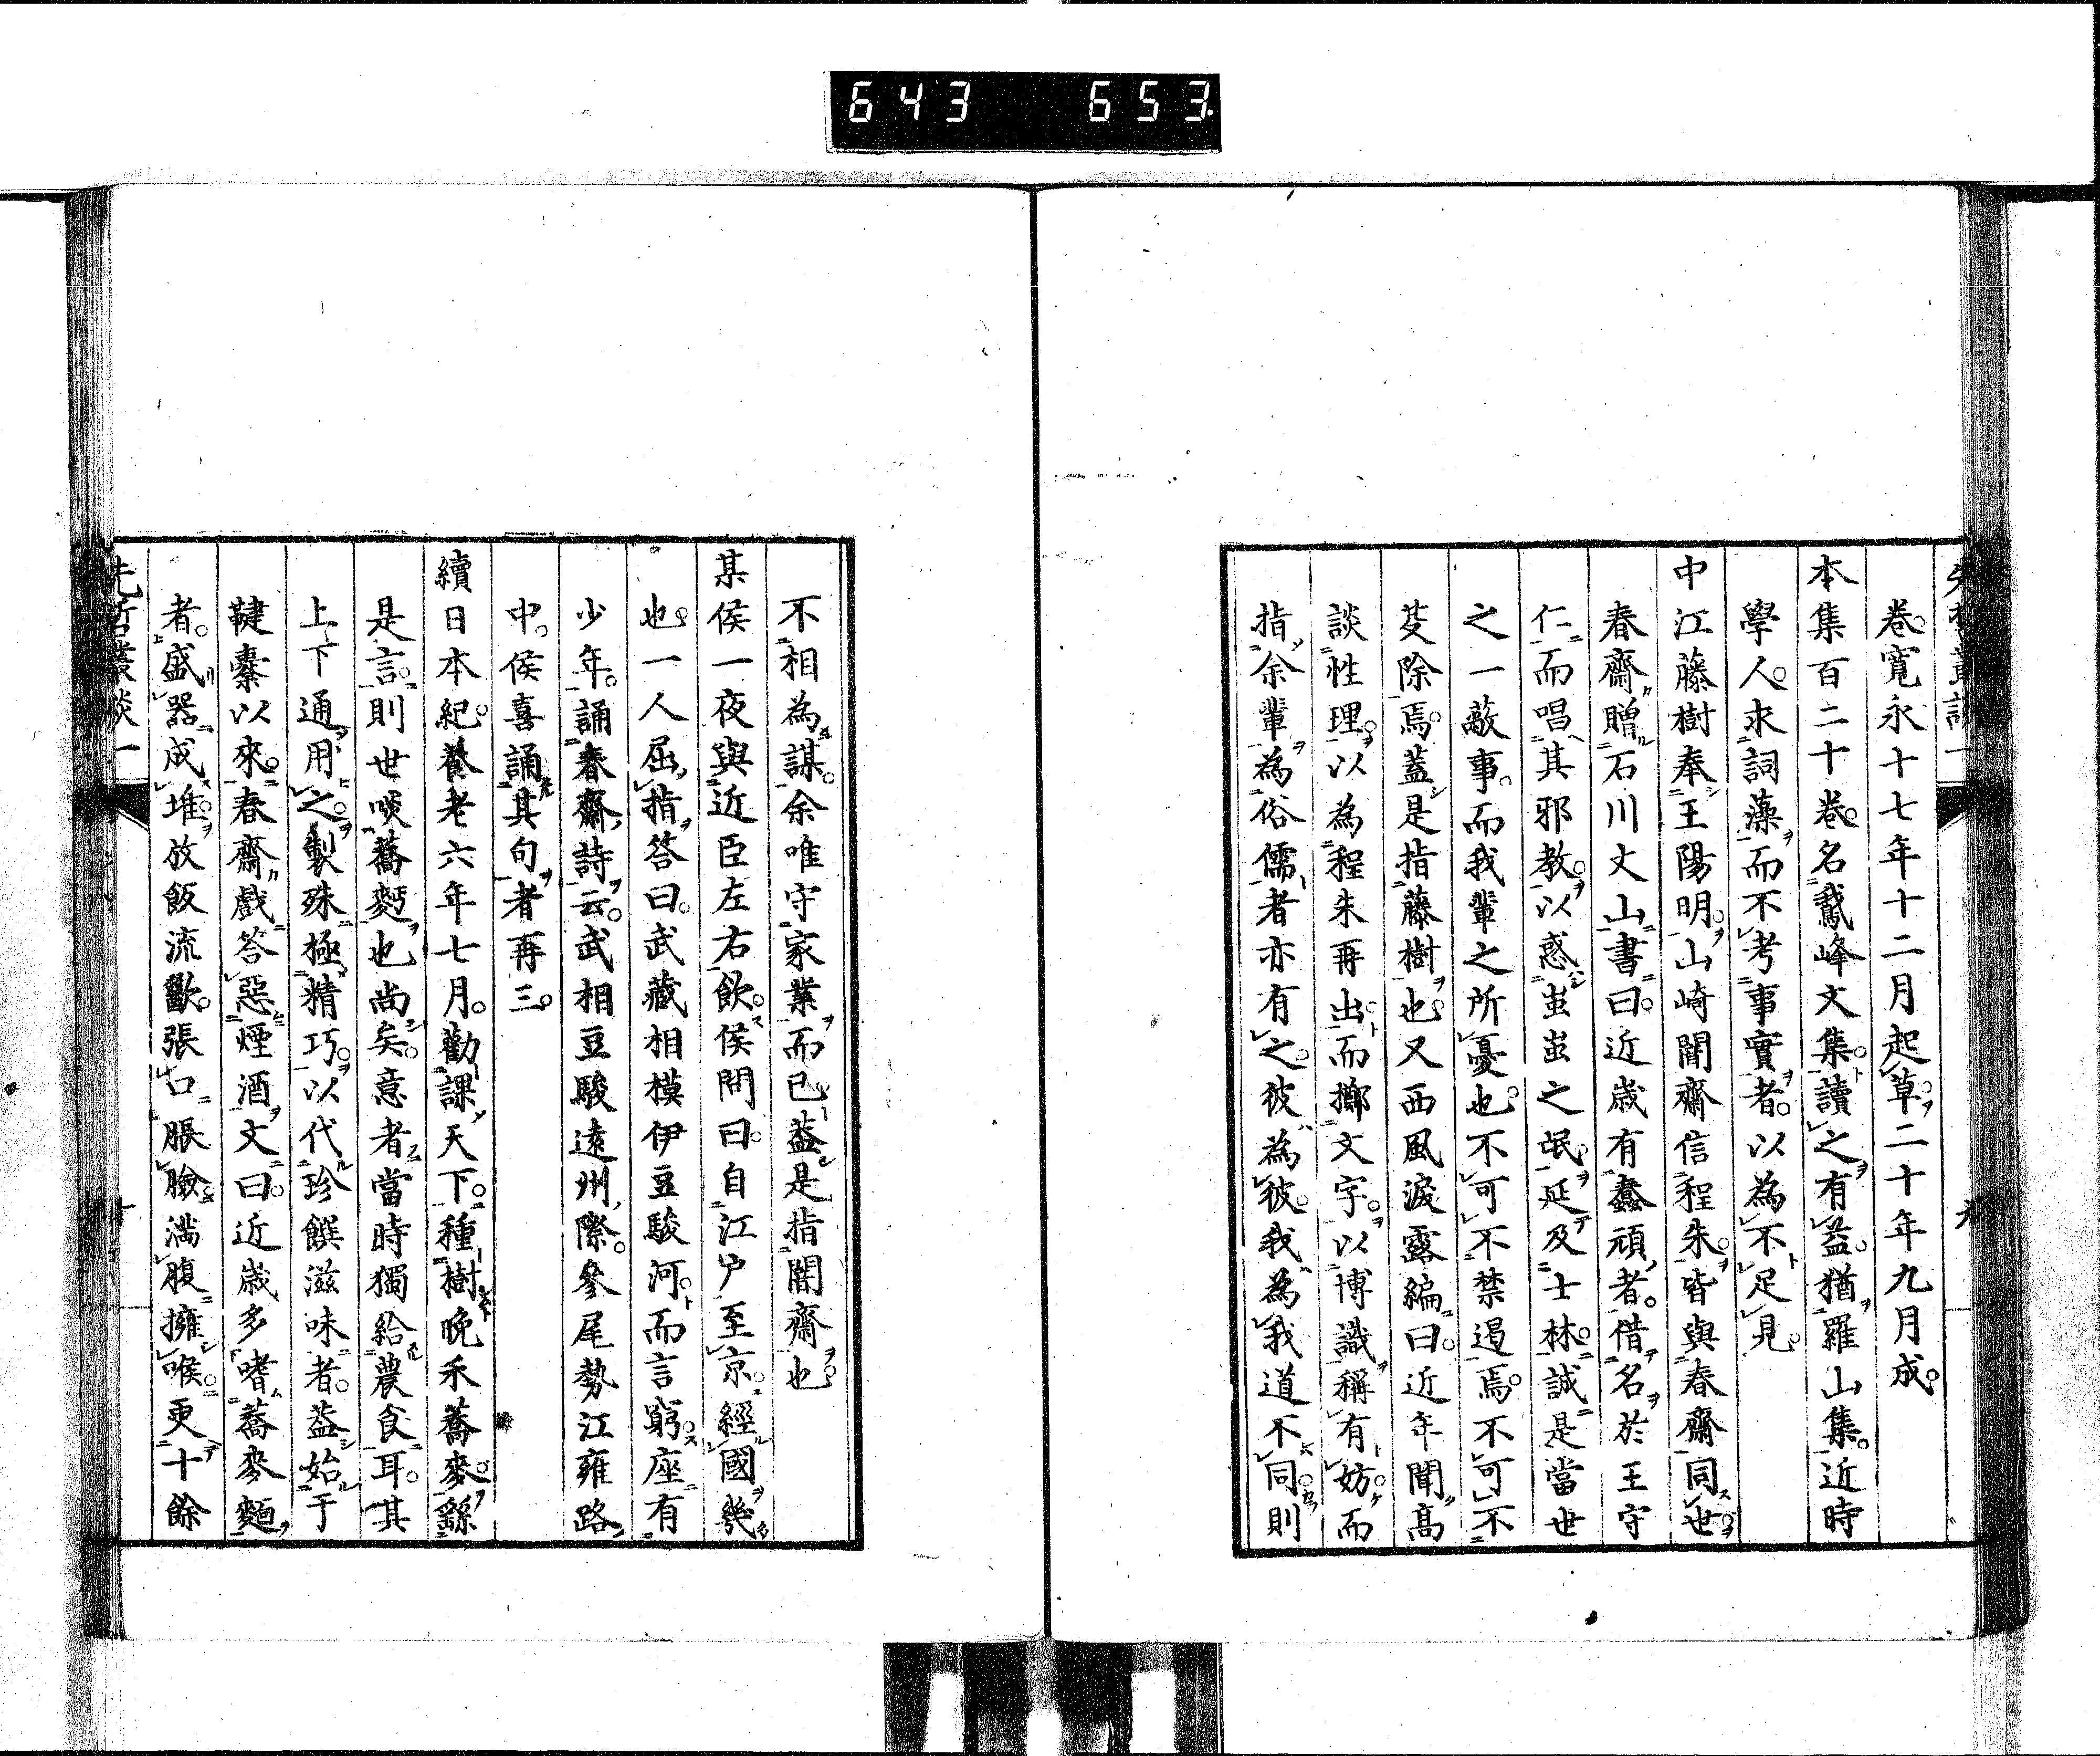 643 653
先哲叢談一 九
卷。寬永十七年十二月起草。二十年九月成。
本集百二十卷。名鵞峰文集。讀之有益。猶羅山集。近時
學人。求詞藻而不考事實者。以為不足見。
中江藤樹奉王陽明。山崎闇齋信程朱。皆與春齋同世。
春齋贈石川丈山書曰。近歲有蠢頑者。借名於王守
仁而唱其邪教。以惑蚩蚩之氓。延及士林。誠是當世
之一蔽事。而我輩之所憂也。不可不禁遏焉。不可不
芟除焉。蓋是指藤樹也。又西風淚露編曰。近年聞高
談性理。以為程朱再出。而擲文字。以博識稱有妨。而
指余輩為俗儒者亦有之。彼為彼。我為我。道不同。則
不相為謀。余唯守家業而已。蓋是指闇齋也。
某侯一夜與近臣左右飲。侯問曰。自江戶至京。經國幾
也。一人屈指答曰。武藏相模伊豆駿河。而言窮。座有
少年。誦春齋詩云。武相豆駿遠州際。參尾勢江雍路
中。侯喜誦其句者再三。
續日本紀。養老六年七月。勸課天下。種樹晚禾蕎麥。繇
是言。則世啖蕎麪也尚矣。意者當時獨給農食耳。其
上下通用之。製殊極精巧。以代珍饌滋味者。蓋始于
鞬櫜以來。春齋戲答惡煙酒文曰。近歲多嗜蕎麥麵
者。盛器成堆。放飯流歠。張口脹臉。滿腹擁喉。更十餘
先哲叢談一 十